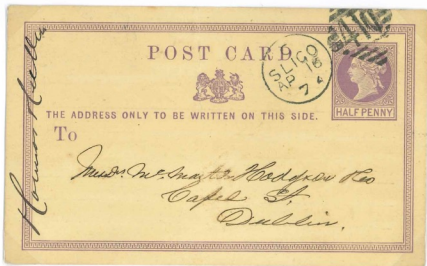 POST CARD
SLIGO
AP 7
THE ADDRESS ONLY TO BE WRITTEN ON THIS SIDE.
HALF PENNY
To
Messrs. McMaster Hodgson & Co
Capel St.
Dublin.